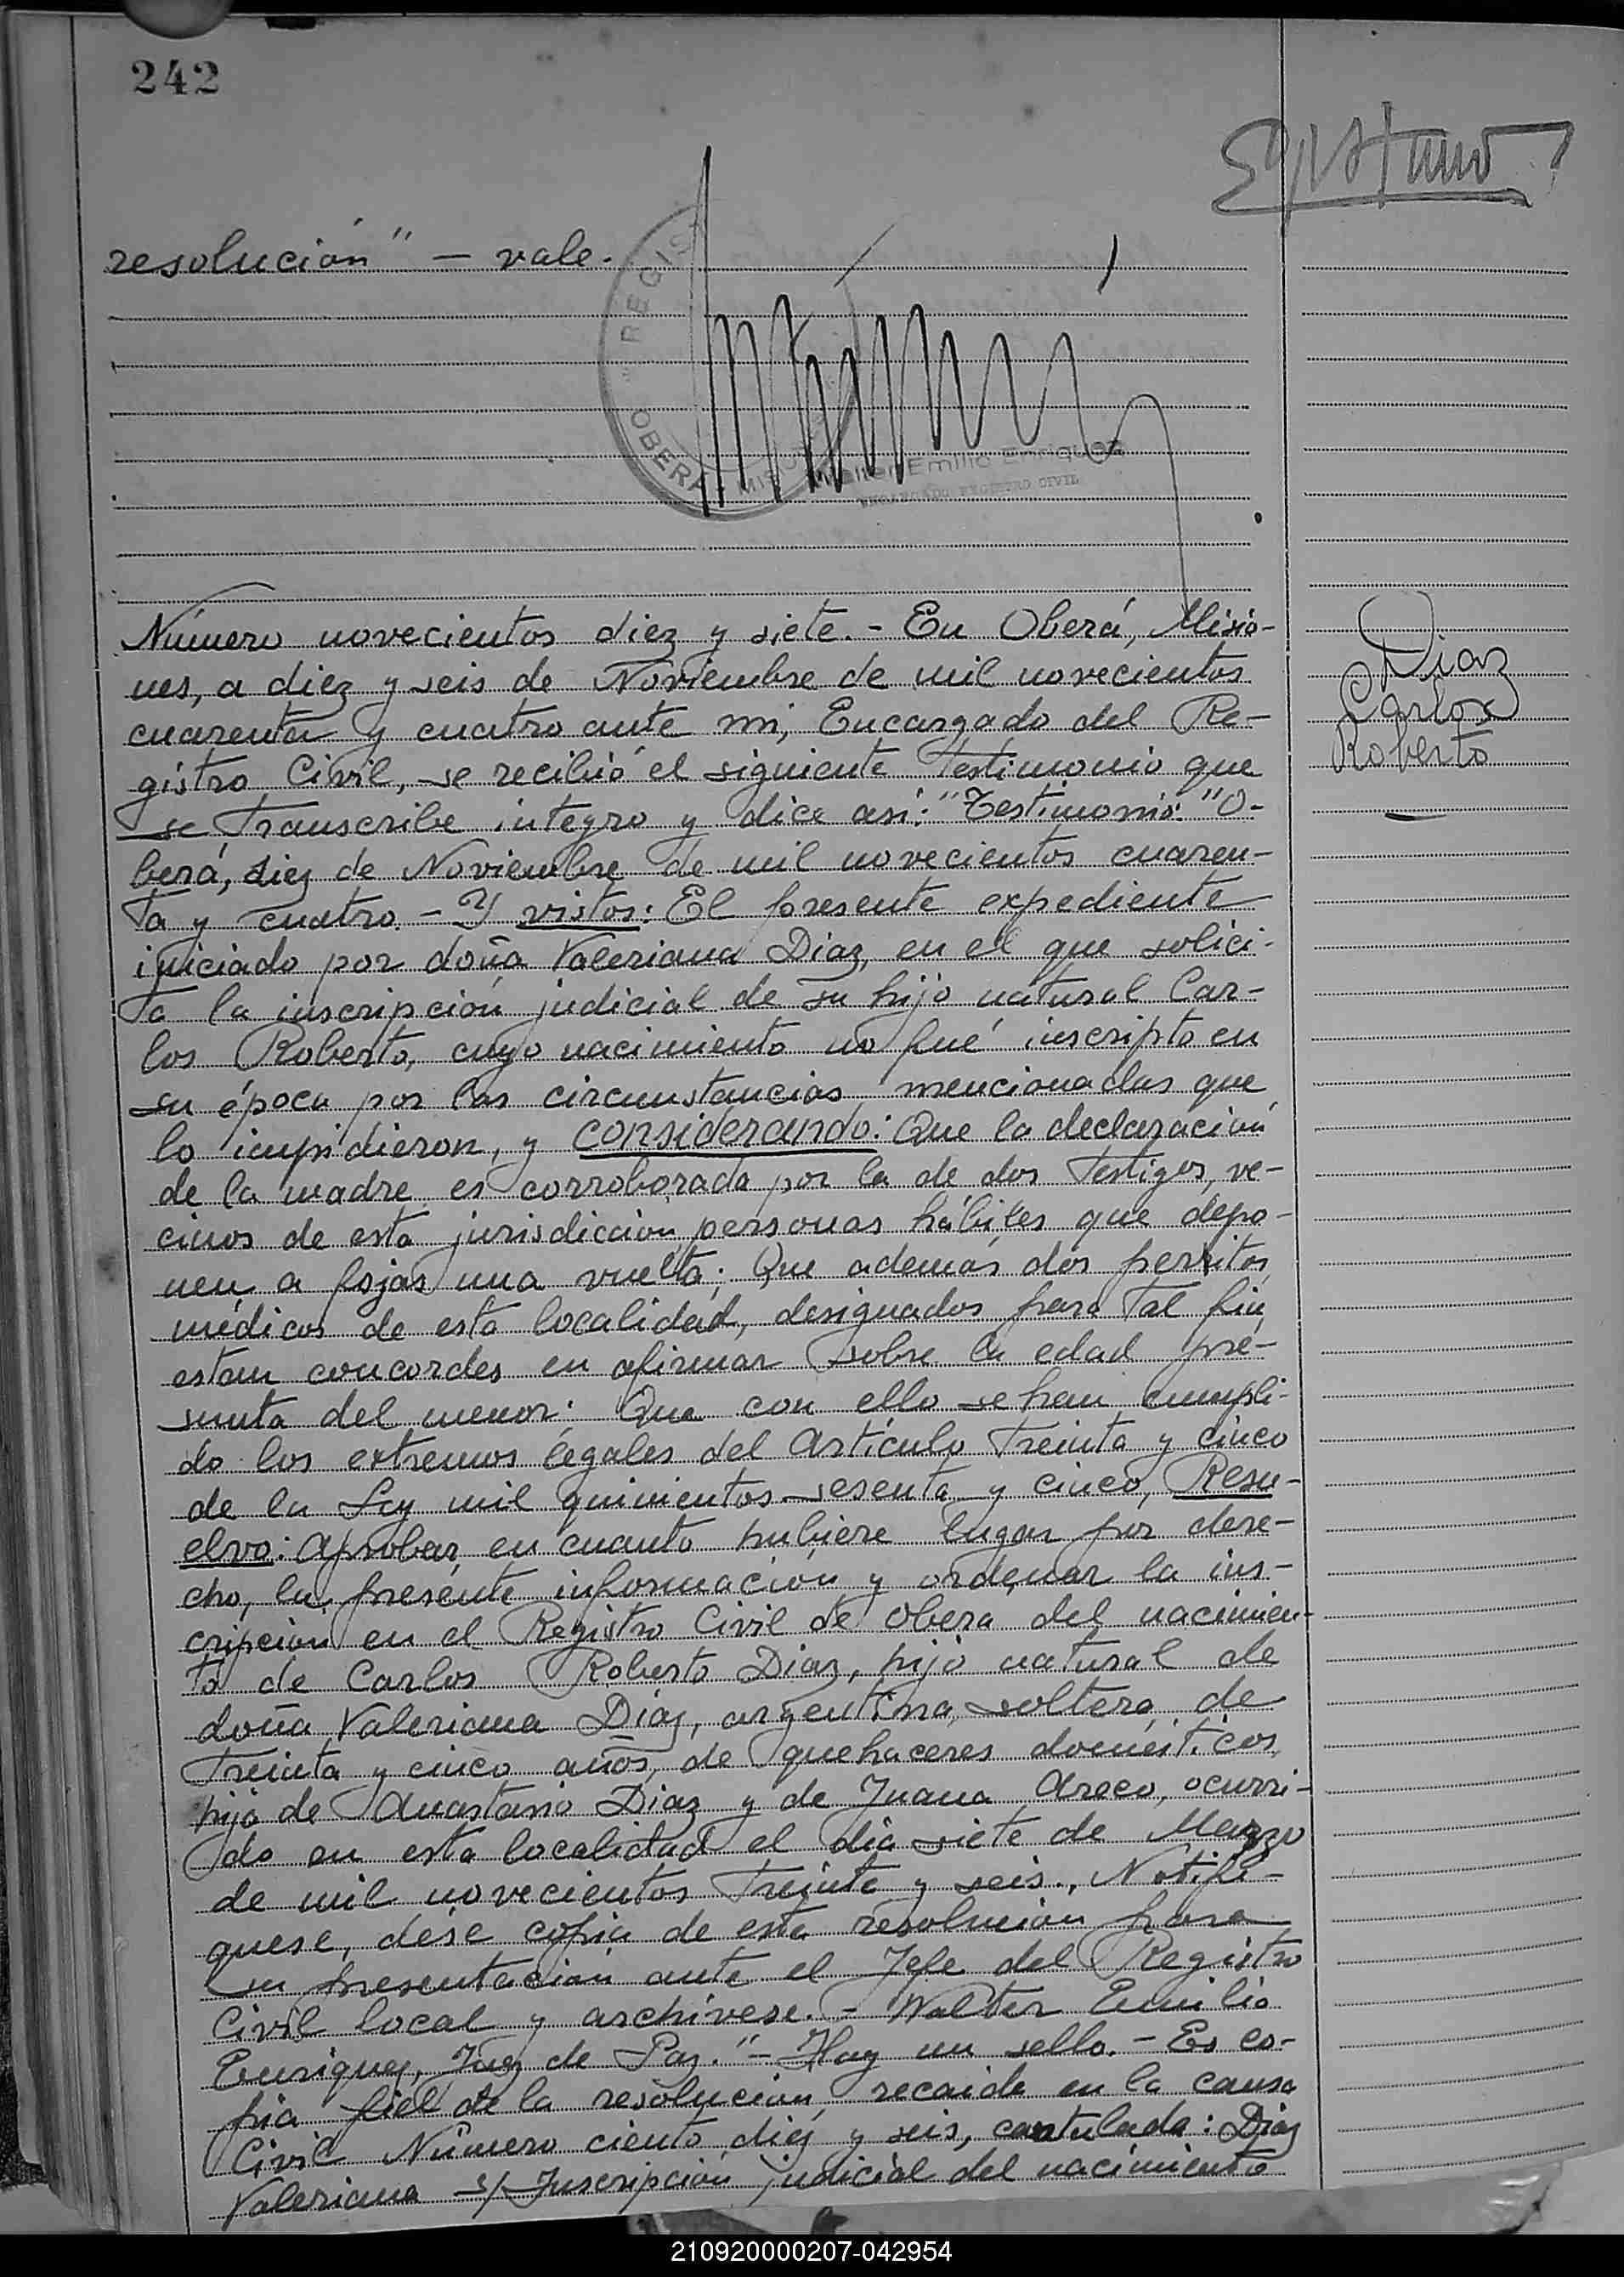 242
resolución" — vale.
REGIS
OBERA - MISIONES
Walter Emilio Enriquez
ENCARGADO REGISTRO CIVIL
Número novecientos diez y siete. - En Oberá, Misio-
nes, a diez y seis de Noviembre de mil novecientos
cuarenta y cuatro ante mi, Encargado del Re-
gistro Civil, se recibió el siguiente Testimonio que
se Transcribe integro y dice así: "Testimonio: "O-
berá, diez de Noviembre de mil novecientos cuaren-
ta y cuatro. - Y vistos: El presente expediente
iniciado por doña Valeriana Diaz, en el que solici-
ta la inscripción judicial de su hijo natural Car-
los Roberto, cuyo nacimiento no fué inscripto en
su época por las circunstancias mencionadas que
lo impidieron, y considerando: Que la declaración
de la madre es corroborada por la de dos Testigos, ve-
cinos de esta jurisdicción, personas hábiles que depo-
nen a fojas una vuelta; Que además dos perritos
médicos de esta localidad, designados para Tal fin
estan concordes en afirmar sobre la edad pre-
sunta del menor: Que con ello se han cumpli-
do los extremos legales del Artículo Treinta y cinco
de la Ley mil quinientos sesenta y cinco, Resu-
elvo: Aprobar en cuanto hubiere lugar por dere-
cho, la presente información y ordenar la ins-
cripción en el Registro Civil de Obera del nacimien-
to de Carlos Roberto Diaz, hijo natural de
doña Valeriana Díaz, argentina, soltera, de
Treinta y cinco años, de quehaceres domésticos,
hija de Anastasio Diaz y de Juana Areco, ocurri-
do en esta localidad el día siete de Marzo
de mil novecientos Treinta y seis., Notifí-
quese, dése copia de esta resolución para
su presentación ante el Jefe del Registro
Civil local y archívese. - Walter Emilio
Enriquez, Juez de Paz." - Hay un sello. - Es co-
pia fiel de la resolución recaida en la causa
Civil Número ciento diez y seis, caratulada: Diaz
Valeriana s/ Inscripción judicial del nacimiento
Diaz
Carlos
Roberto
210920000207-042954